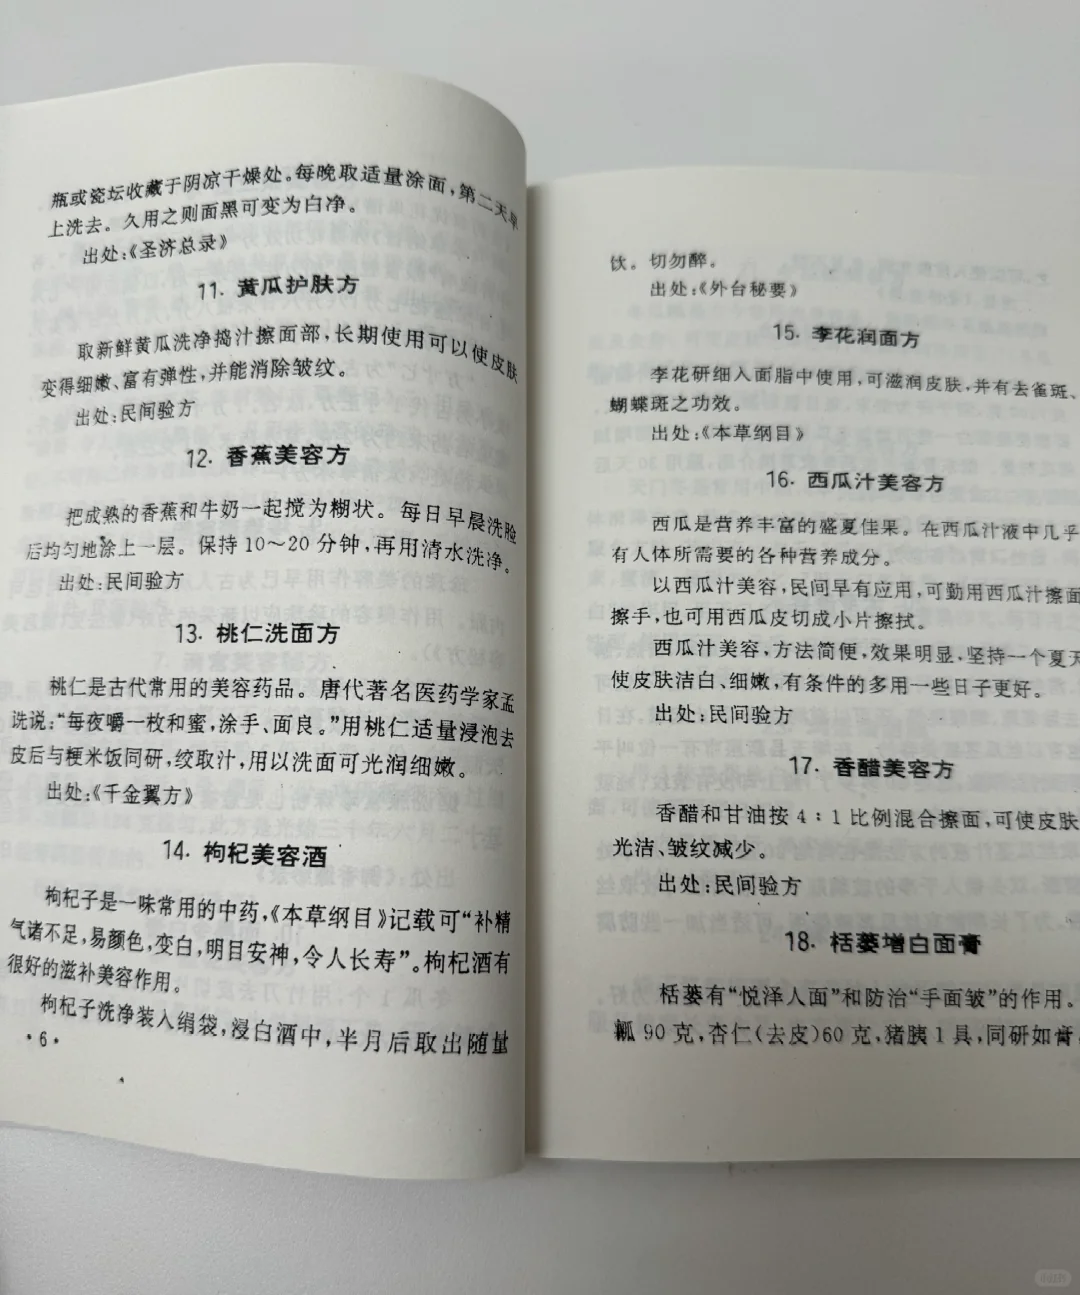 瓶或瓷坛收藏于阴凉干燥处。每晚取适量涂面，第二天早
上洗去。久用之则面黑可变为白净。
出处：《圣济总录》
11. 黄瓜护肤方
取新鲜黄瓜洗净捣汁擦面部，长期使用可以使皮肤
变得细嫩、富有弹性，并能消除皱纹。
出处：民间验方
12. 香蕉美容方
把成熟的香蕉和牛奶一起搅为糊状。每日早晨洗脸
后均匀地涂上一层。保持10～20分钟，再用清水洗净。
出处：民间验方
13. 桃仁洗面方
桃仁是古代常用的美容药品。唐代著名医药学家孟
诜说：“每夜嚼一枚和蜜，涂手、面良。”用桃仁适量浸泡去
皮后与粳米饭同研，绞取汁，用以洗面可光润细嫩。
出处：《千金翼方》
14. 枸杞美容酒
枸杞子是一味常用的中药，《本草纲目》记载可“补精
气诸不足，易颜色，变白，明目安神，令人长寿”。枸杞酒有
很好的滋补美容作用。
枸杞子洗净装入绢袋，浸白酒中，半月后取出随量
·6·
饮。切勿醉。
出处：《外台秘要》
15. 李花润面方
李花研细入面脂中使用，可滋润皮肤，并有去雀斑、
蝴蝶斑之功效。
出处：《本草纲目》
16. 西瓜汁美容方
西瓜是营养丰富的盛夏佳果。在西瓜汁液中几乎
有人体所需要的各种营养成分。
以西瓜汁美容，民间早有应用，可勤用西瓜汁擦面
擦手，也可用西瓜皮切成小片擦拭。
西瓜汁美容，方法简便，效果明显，坚持一个夏天
使皮肤洁白、细嫩，有条件的多用一些日子更好。
出处：民间验方
17. 香醋美容方
香醋和甘油按4∶1比例混合擦面，可使皮肤
光洁、皱纹减少。
出处：民间验方
18. 栝蒌增白面膏
栝蒌有“悦泽人面”和防治“手面皱”的作用。
瓤90克，杏仁（去皮）60克，猪胰1具，同研如膏，